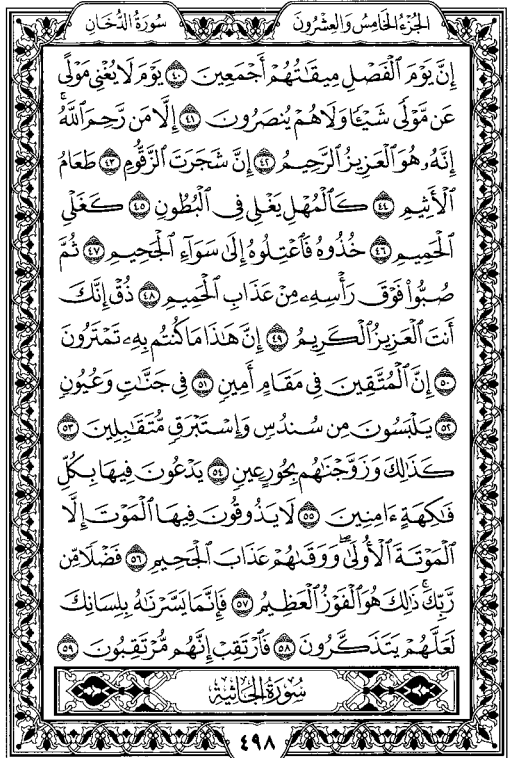 سُورَةُ الدُّخَانِ الجُزْءُ الخَامِسُ وَالعِشْرُونَ
إِنَّ يَوْمَ ٱلْفَصْلِ مِيقَٰتُهُمْ أَجْمَعِينَ ٤٠ يَوْمَ لَا يُغْنِى مَوْلًى
عَن مَّوْلًى شَيْـًٔا وَلَا هُمْ يُنصَرُونَ ٤١ إِلَّا مَن رَّحِمَ ٱللَّهُۚ
إِنَّهُۥ هُوَ ٱلْعَزِيزُ ٱلرَّحِيمُ ٤٢ إِنَّ شَجَرَتَ ٱلزَّقُّومِ ٤٣ طَعَامُ
ٱلْأَثِيمِ ٤٤ كَٱلْمُهْلِ يَغْلِى فِى ٱلْبُطُونِ ٤٥ كَغَلْىِ
ٱلْحَمِيمِ ٤٦ خُذُوهُ فَٱعْتِلُوهُ إِلَىٰ سَوَآءِ ٱلْجَحِيمِ ٤٧ ثُمَّ
صُبُّوا۟ فَوْقَ رَأْسِهِۦ مِنْ عَذَابِ ٱلْحَمِيمِ ٤٨ ذُقْ إِنَّكَ
أَنتَ ٱلْعَزِيزُ ٱلْكَرِيمُ ٤٩ إِنَّ هَٰذَا مَا كُنتُم بِهِۦ تَمْتَرُونَ
٥٠ إِنَّ ٱلْمُتَّقِينَ فِى مَقَامٍ أَمِينٍ ٥١ فِى جَنَّٰتٍ وَعُيُونٍ
٥٢ يَلْبَسُونَ مِن سُندُسٍ وَإِسْتَبْرَقٍ مُّتَقَٰبِلِينَ ٥٣
كَذَٰلِكَ وَزَوَّجْنَٰهُم بِحُورٍ عِينٍ ٥٤ يَدْعُونَ فِيهَا بِكُلِّ
فَٰكِهَةٍ ءَامِنِينَ ٥٥ لَا يَذُوقُونَ فِيهَا ٱلْمَوْتَ إِلَّا
ٱلْمَوْتَةَ ٱلْأُولَىٰۖ وَوَقَىٰهُمْ عَذَابَ ٱلْجَحِيمِ ٥٦ فَضْلًا مِّن
رَّبِّكَۚ ذَٰلِكَ هُوَ ٱلْفَوْزُ ٱلْعَظِيمُ ٥٧ فَإِنَّمَا يَسَّرْنَٰهُ بِلِسَانِكَ
لَعَلَّهُمْ يَتَذَكَّرُونَ ٥٨ فَٱرْتَقِبْ إِنَّهُم مُّرْتَقِبُونَ ٥٩
سُورَةُ الجَاثِيَةِ
٤٩٨